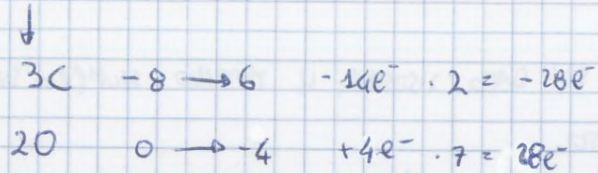 ↓
3C -8 → 6 -14e⁻ · 2 = -28e⁻
2O 0 → -4 +4e⁻ · 7 = 28e⁻